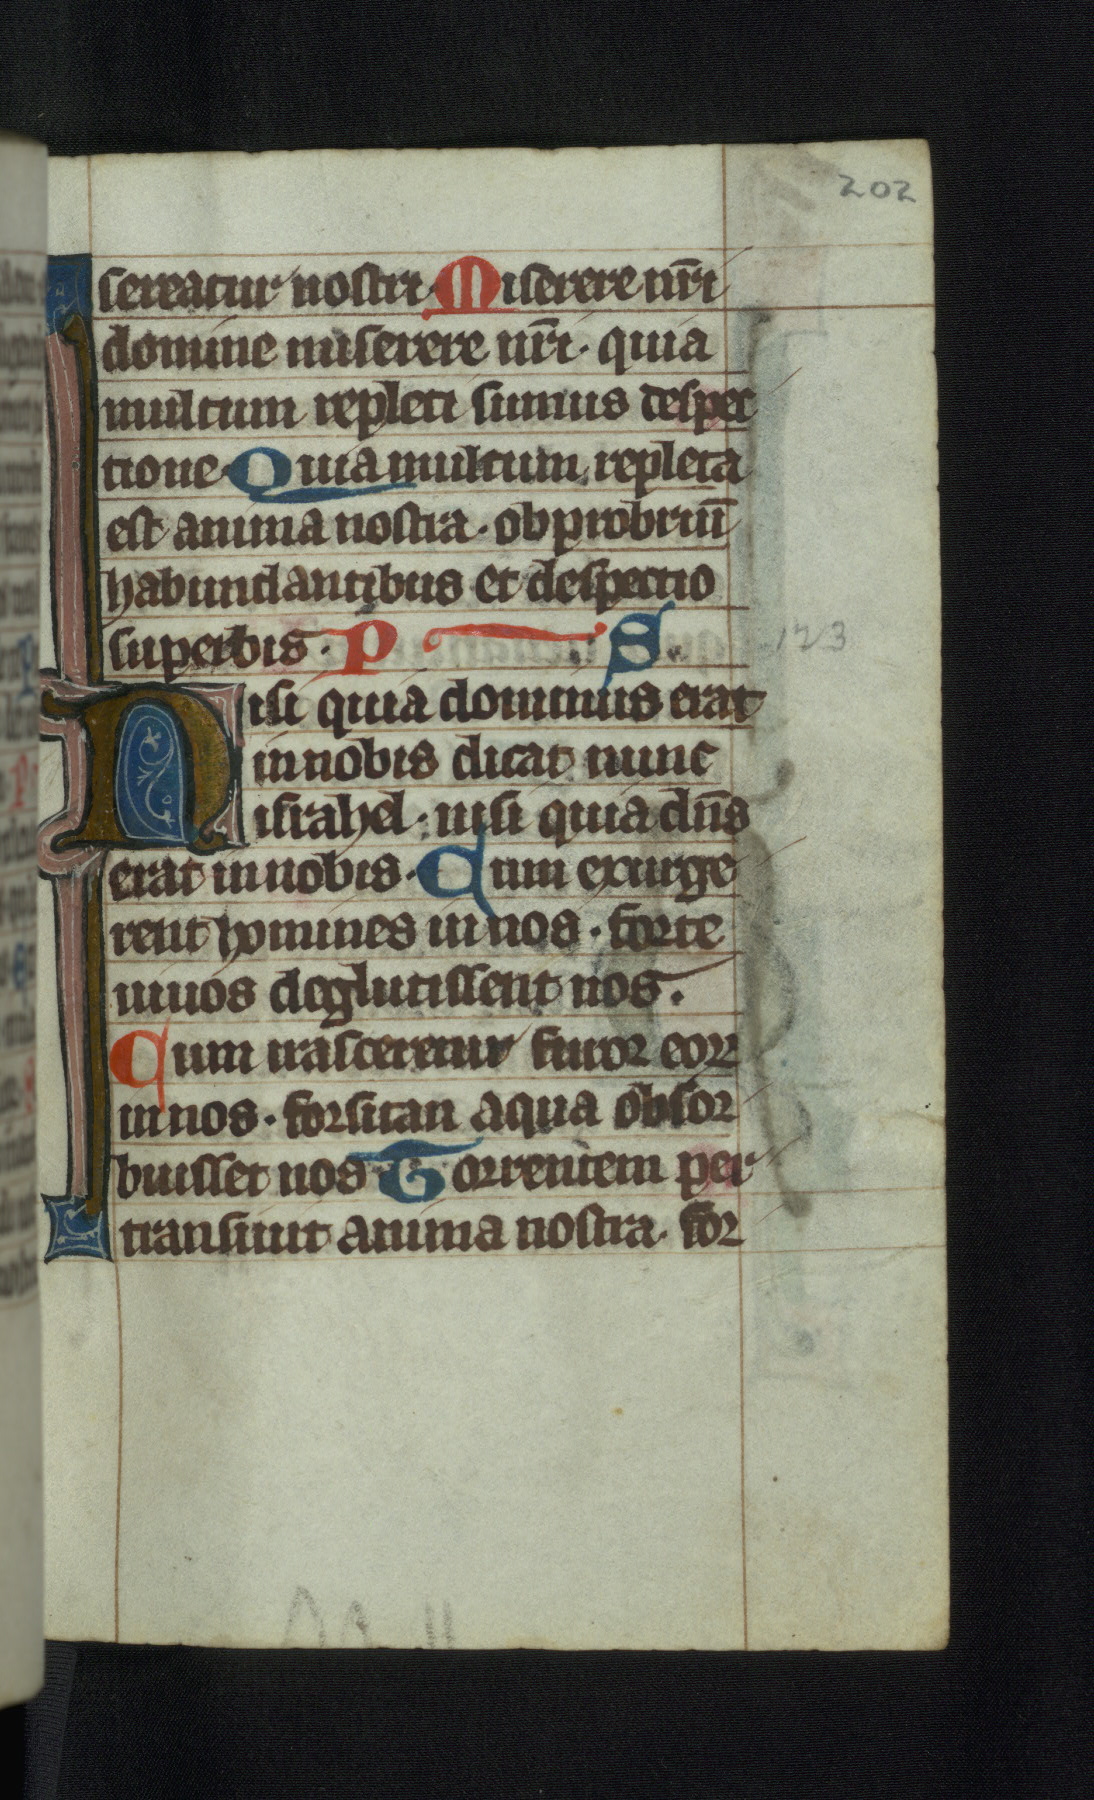 202
sereatur nostri · Miserere nr̄i
domine miserere nr̄i · quia
multum repleti sumus despec
tione · Quia multum repleta
est anima nostra · obprobriū
habundantibus et despectio
superbis · P S.
123
Nisi quia dominus erat
in nobis dicat nunc
israhel · nisi quia dn̄s
erat in nobis · Cum exurge
rent homines in nos · forte
uiuos deglutissent nos .
Cum irasceretur furor eoꝝ
in nos · forsitan aqua obsor
buisset nos · Torrentem per
transiuit anima nostra · for